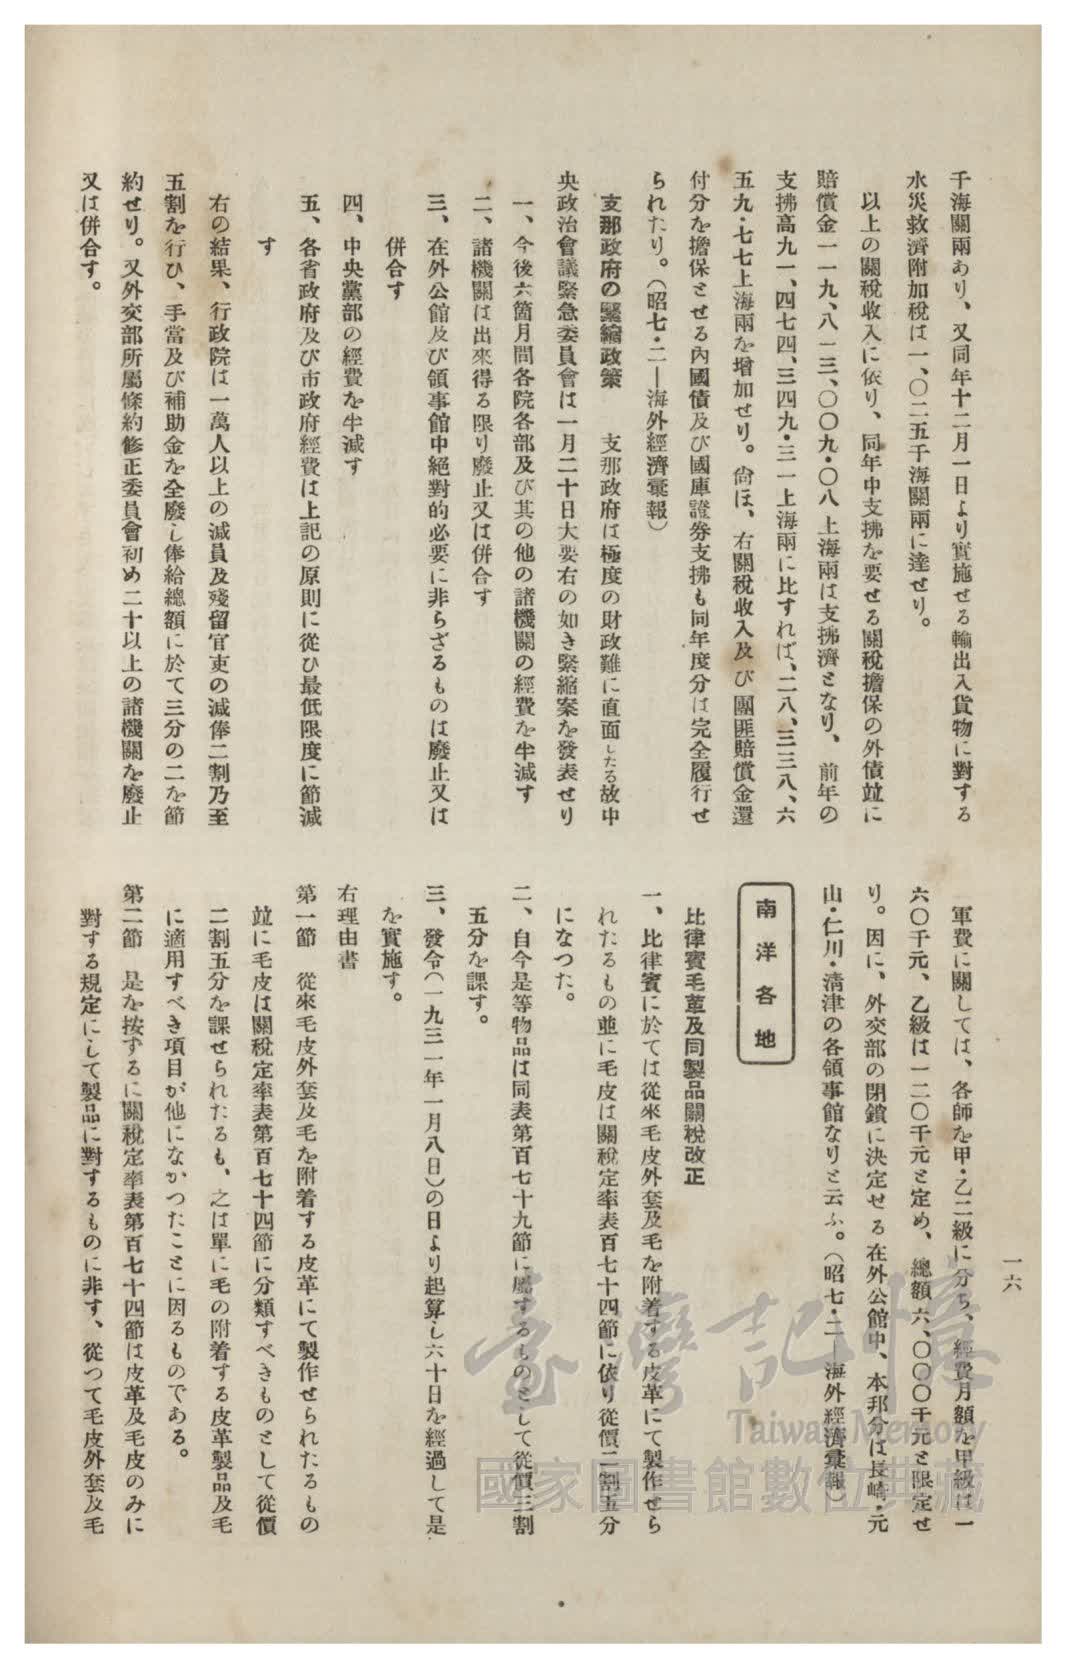 千海關兩あり、又同年十二月一日より實施せる輸出入貨物に對する
水災救濟附加稅は一、〇二五千海關兩に達せり。
以上の關稅收入に依り、同年中支拂を要せる關稅擔保の外債竝に
賠償金一一九、八一三、〇〇九・〇八上海兩は支拂濟となり、前年の
支拂高九一、四七四、三四九・三一上海兩に比すれば、二八、三三八、六
五九・七七上海兩を增加せり。尙ほ、右關稅收入及び團匪賠償金還
付分を擔保とせる內國債及び國庫證券支拂も同年度分は完全履行せ
られたり。(昭七・二—海外經濟彙報)
支那政府の緊縮政策　支那政府は極度の財政難に直面したる故中
央政治會議緊急委員會は一月二十日大要右の如き緊縮案を發表せり
一、今後六箇月間各院各部及び其の他の諸機關の經費を半減す
二、諸機關は出來得る限り廢止又は併合す
三、在外公館及び領事館中絕對的必要に非らざるものは廢止又は
併合す
四、中央黨部の經費を半減す
五、各省政府及び市政府經費は上記の原則に從ひ最低限度に節減
す
右の結果、行政院は一萬人以上の減員及殘留官吏の減俸二割乃至
五割を行ひ、手當及び補助金を全廢し俸給總額に於て三分の二を節
約せり。又外交部所屬條約修正委員會初め二十以上の諸機關を廢止
又は併合す。
軍費に關しては、各師を甲・乙二級に分ち、經費月額を甲級は一
六〇千元、乙級は一二〇千元と定め、總額六、〇〇〇千元と限定せ
り。因に、外交部の閉鎖に決定せる在外公館中、本邦分は長崎・元
山・仁川・淸津の各領事館なりと云ふ。(昭七・二—海外經濟彙報)
南洋各地
比律賓毛革及同製品關稅改正
一、比律賓に於ては從來毛皮外套及毛を附着する皮革にて製作せら
れたるもの並に毛皮は關稅定率表百七十四節に依り從價二割五分
になつた。
二、自今是等物品は同表第百七十九節に屬するものとして從價三割
五分を課す。
三、發令(一九三一年一月八日)の日より起算し六十日を經過して是
を實施す。
右理由書
第一節　從來毛皮外套及毛を附着する皮革にて製作せられたるもの
竝に毛皮は關稅定率表第百七十四節に分類すべきものとして從價
二割五分を課せられたるも、之は單に毛の附着する皮革製品及毛
に適用すべき項目が他になかつたことに因るものである。
第二節　是を按ずるに關稅定率表第百七十四節は皮革及毛皮のみに
對する規定にして製品に對するものに非す、從つて毛皮外套及毛
一六
臺灣記憶
Taiwan Memory
國家圖書館數位典藏